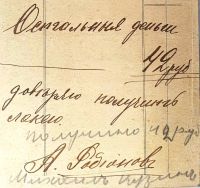 Остальныя деньги
42 руб
довѣряю получить
лакею
получилъ 42 руб
А. Родіоновъ
Михаилъ